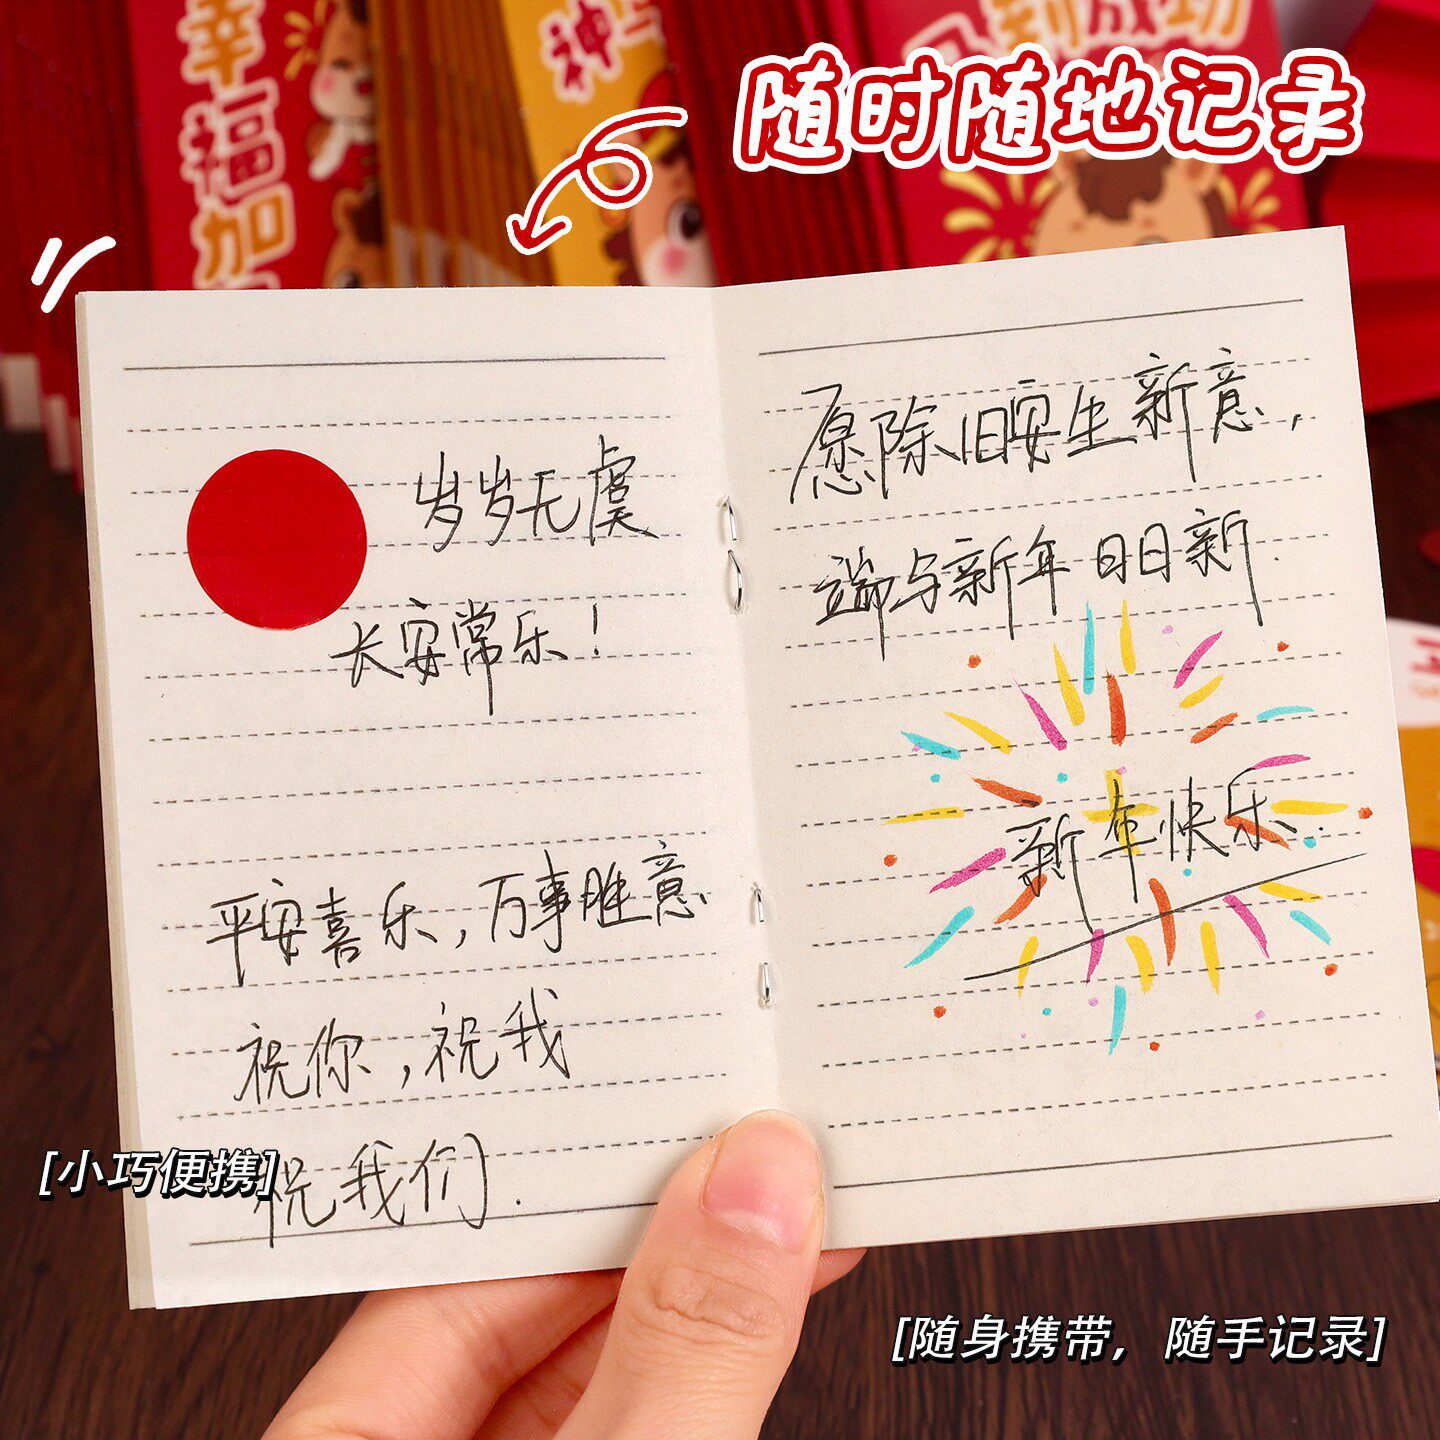 随时随地记录
幸福加
神
岁岁无虞
长安常乐！
平安喜乐，万事胜意
祝你，祝我
祝我们.
愿除旧妄生新意，
端与新年日日新.
新年快乐.
[小巧便携]
[随身携带，随手记录]